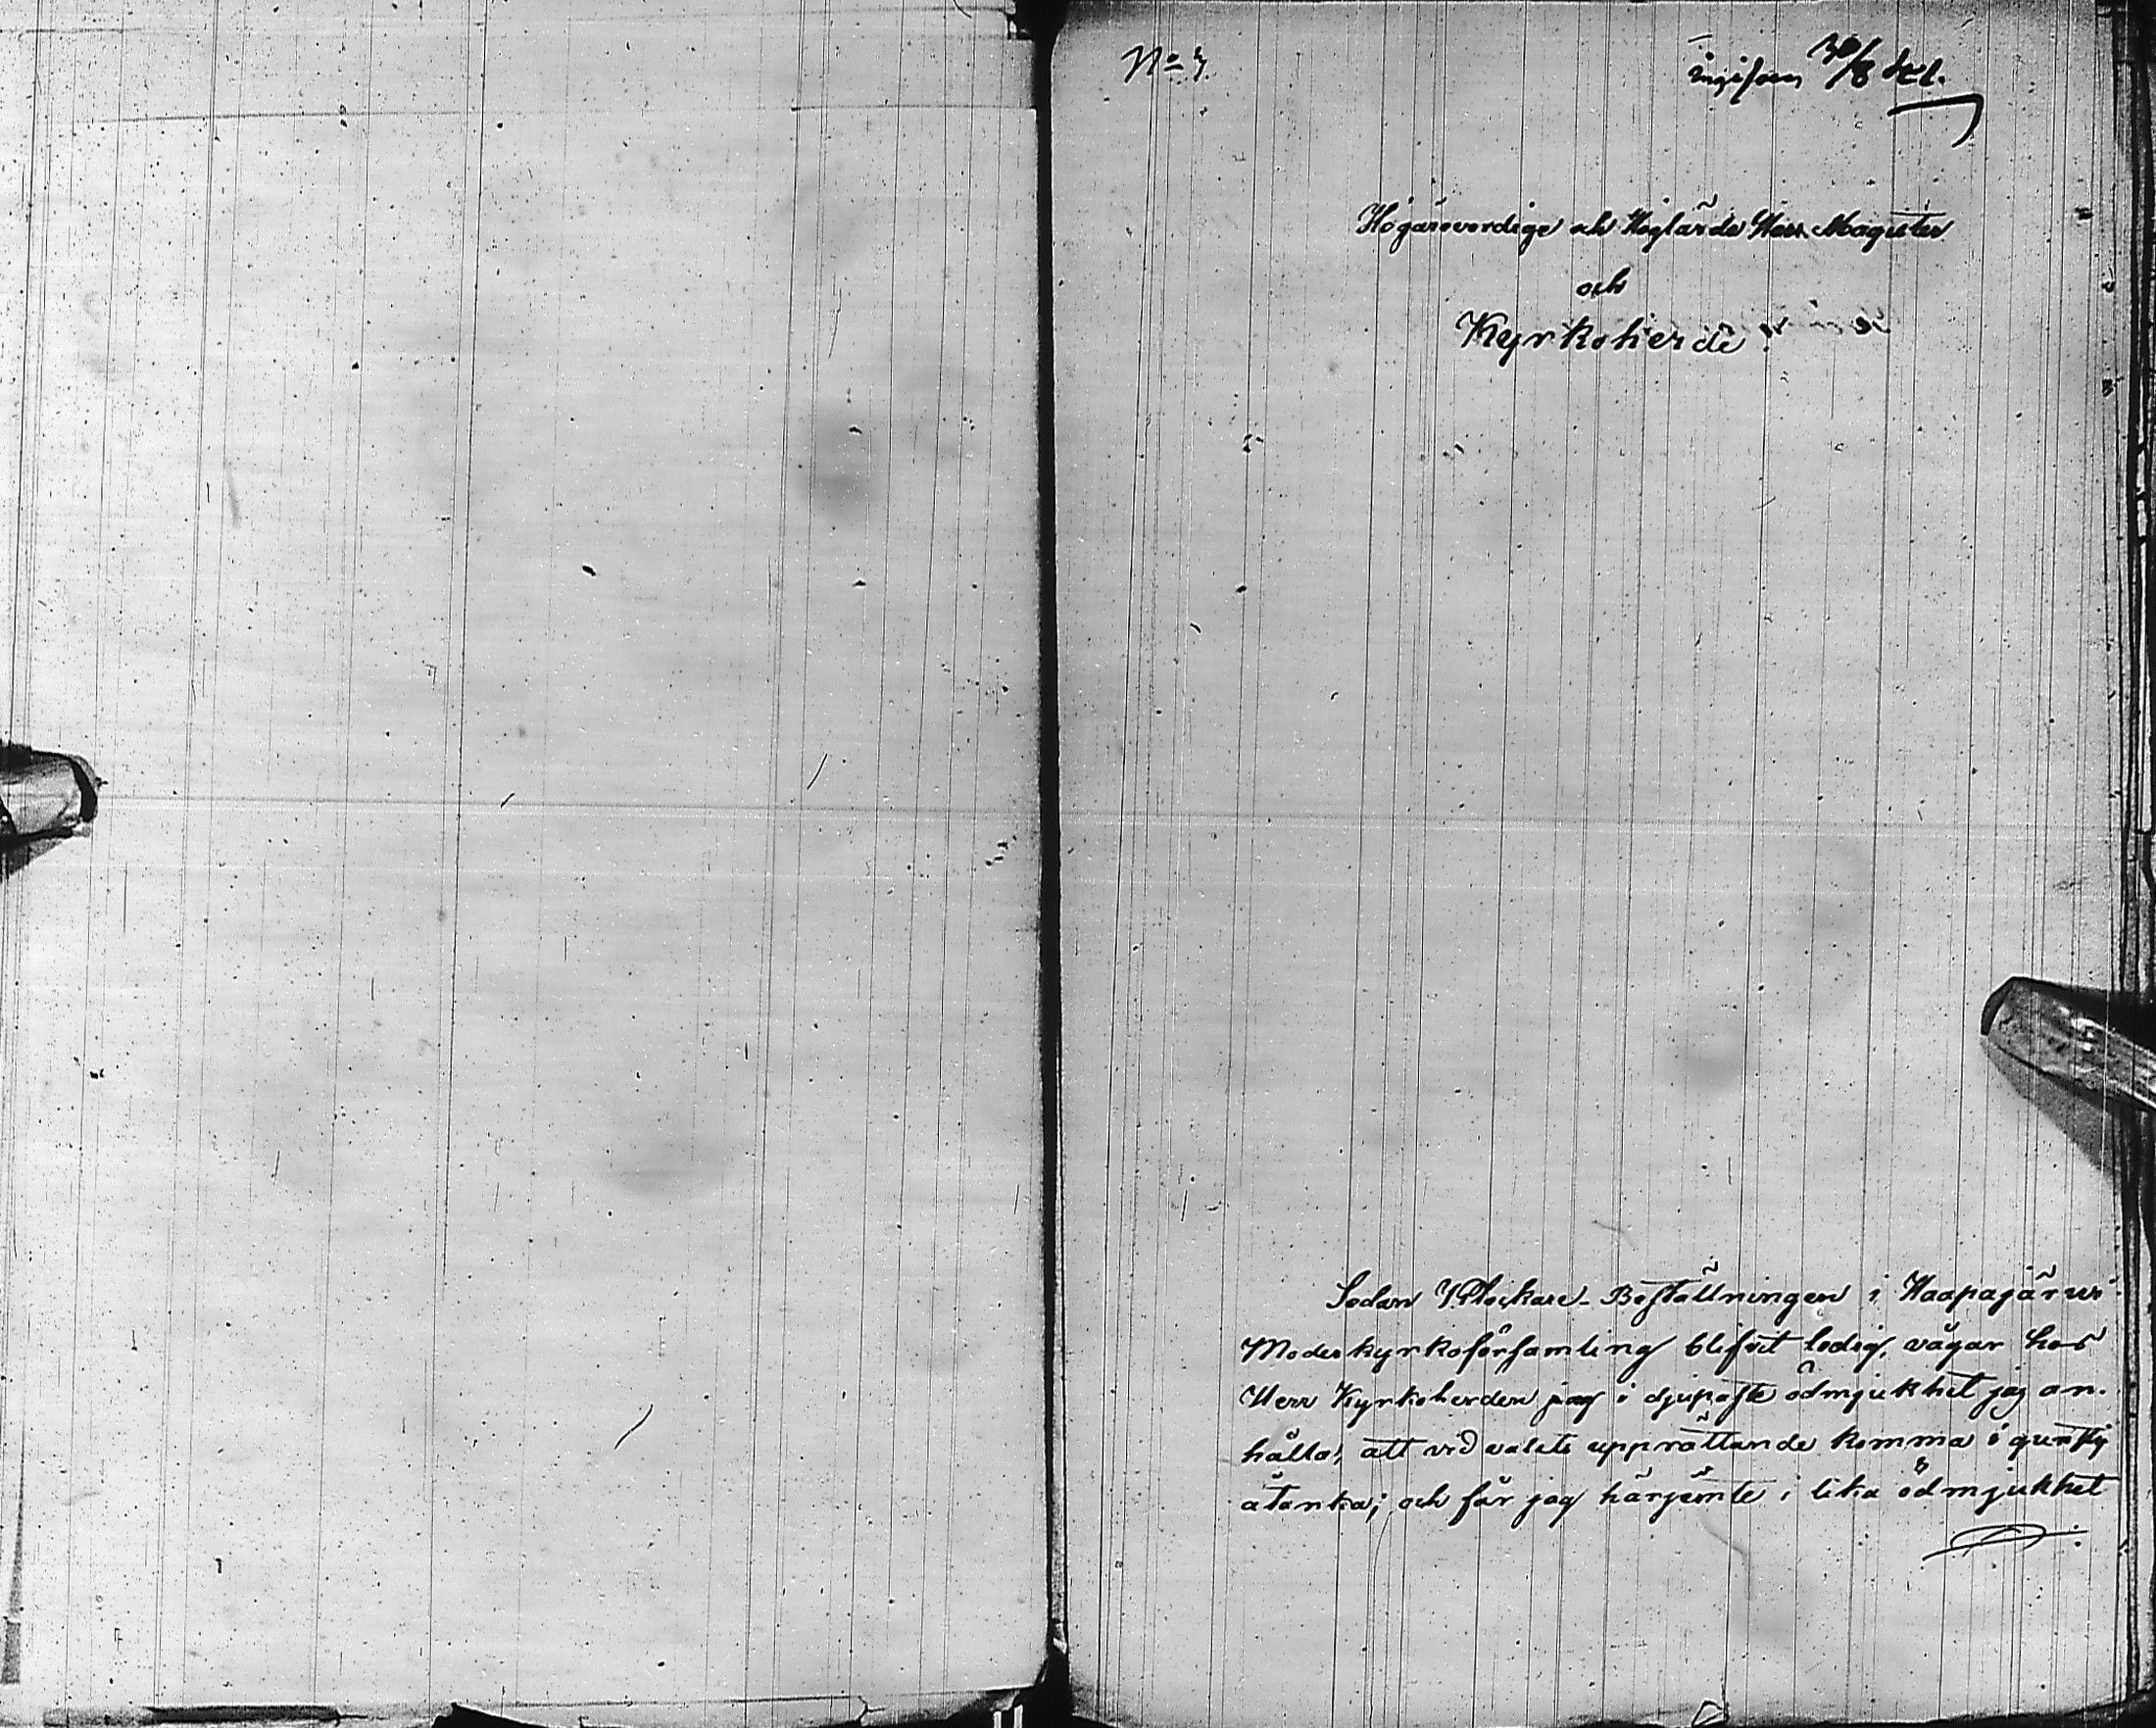 No
Högärevördige och Höglärde Herr Magister
och
Kyrkoherde!
Sedan Klockare-Beställningen i Haapajärvi
Moderkyrkoförsamling blifvit ledig, vågar hos
Herr Kyrkoherden jag i djupaste ödmjukhet jag an-
hålla, att vid valets upprättande komma i gunstig
åtanka; och får jag härjemte i lika ödmjukhet